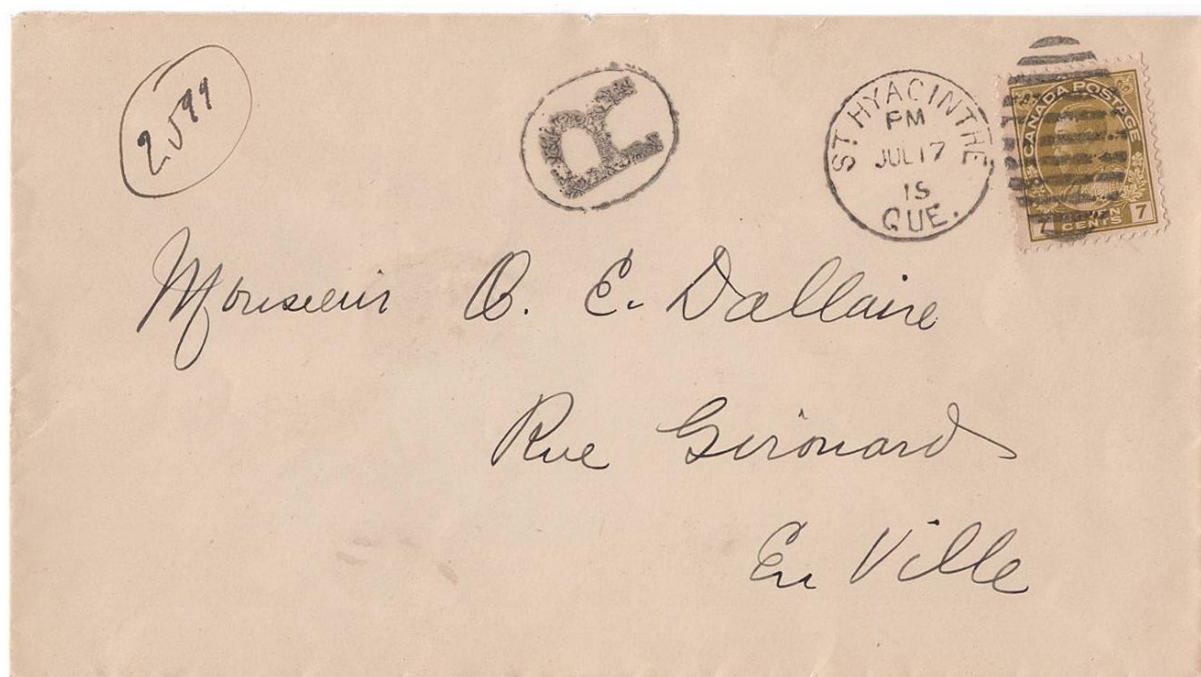 2599
R
ST. HYACINTHE
PM
JUL 17
15
QUE.
CANADA POSTAGE
7 CENTS 7
Monsieur O. E. Dallaire
Rue Girouard
En Ville